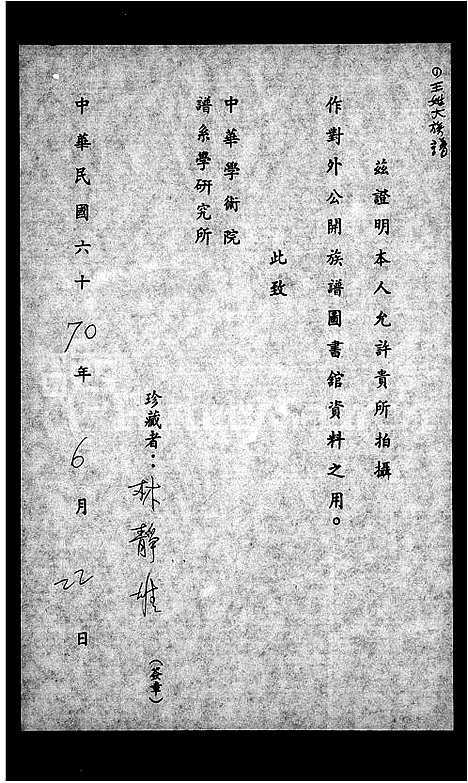 王姓大族譜
茲證明本人允許貴所拍攝
作對外公開族譜圖書館資料之用。
此致
中華學術院
譜系學研究所
珍藏者：林靜雄
(簽章)
中華民國六十70年6月22日